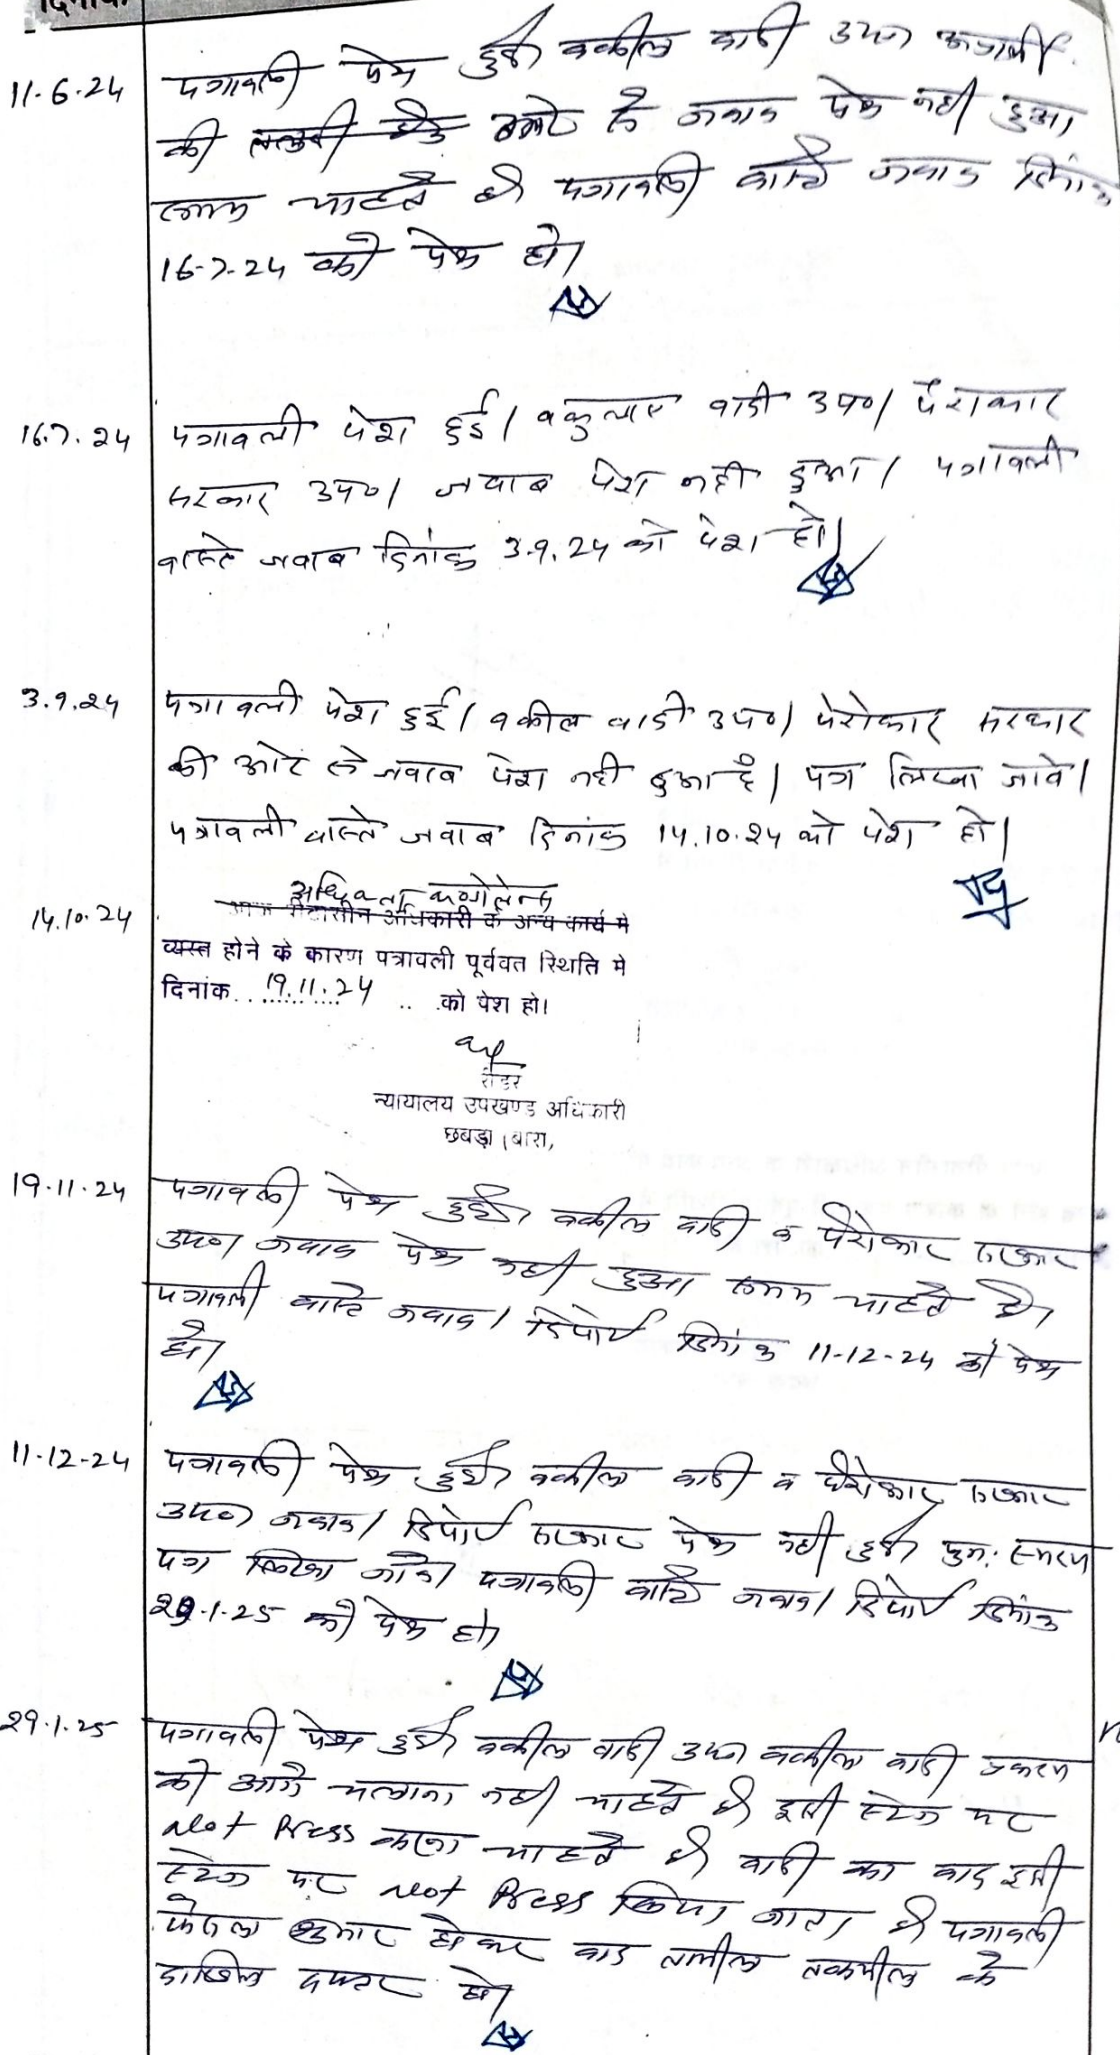 दिनांक
11.6.24 पत्रावली पेश हुई। वकील वादी उप०
की तलबी हेतु से जवाब पेश नही हुआ।
समय चाहते है। पत्रावली वास्ते जवाब दिनांक
16-7-24 को पेश हो।
16.7.24 पत्रावली पेश हुई। वकुलाए वादी उप०। पैरोकार
सरकार उप०। जवाब पेश नही हुआ। पत्रावली
वास्ते जवाब दिनांक 3.9.24 को पेश हो।
3.9.24 पत्रावली पेश हुई। वकील वादी उप०। पेरोकार सरकार
की ओर से जवाब पेश नही हुआ है। पत्र लिखा जावे।
पत्रावली वास्ते जवाब दिनांक 14.10.24 को पेश हो।
अधिवक्ता कण्डोलेन्स
14.10.24 पीठासीन अधिकारी के अन्य कार्य मे
व्यस्त होने के कारण पत्रावली पूर्ववत स्थिति मे
दिनांक 19.11.24 को पेश हो।
रीडर
न्यायालय उपखण्ड अधिकारी
छबड़ा (बारा,
19.11.24 पत्रावली पेश हुई। वकील वादी व पैरोकार सरकार
उप०। जवाब पेश नही हुआ। समय चाहते है।
पत्रावली वास्ते जवाब / रिपोर्ट दिनांक 11-12-24 को पेश
हो।
11-12-24 पत्रावली पेश हुई। वकील वादी व पैरोकार सरकार
उप०। जवाब / रिपोर्ट सरकार पेश नही हुई। पुन: स्मरण
पत्र लिखा जावे। पत्रावली वास्ते जवाब / रिपोर्ट दिनांक
29.1.25 को पेश हो।
29.1.25 पत्रावली पेश हुई। वकील वादी उप० वकील वादी प्रकरण
को आगे चलाना नही चाहते है। इसी स्टेज पर
Not Press करना चाहते है। वादी का वाद इसी
स्टेज पर Not Press किया जाता है। पत्रावली
फेसला शुमार होकर बाद तामील तकमील के
दाखिल दफ्तर हो।